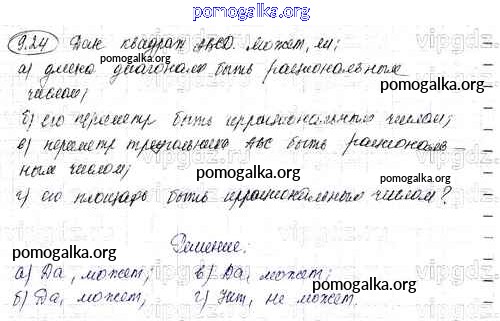 pomogalka.org
9.24 Дан квадрат ABCD. может, ли;
а) длина диагонали быть рациональным
числом;
pomogalka.org
б) его периметр быть иррациональным числом;
в) периметр треугольника ABC быть рационал-
ным числом;
pomogalka.org
г) его площадь быть иррациональным числом?
pomogalka.org
Решение:
pomogalka.org
а) Да, может; в) Да, может;
б) Да, может, г) Нет, не может.
pomogalka.org